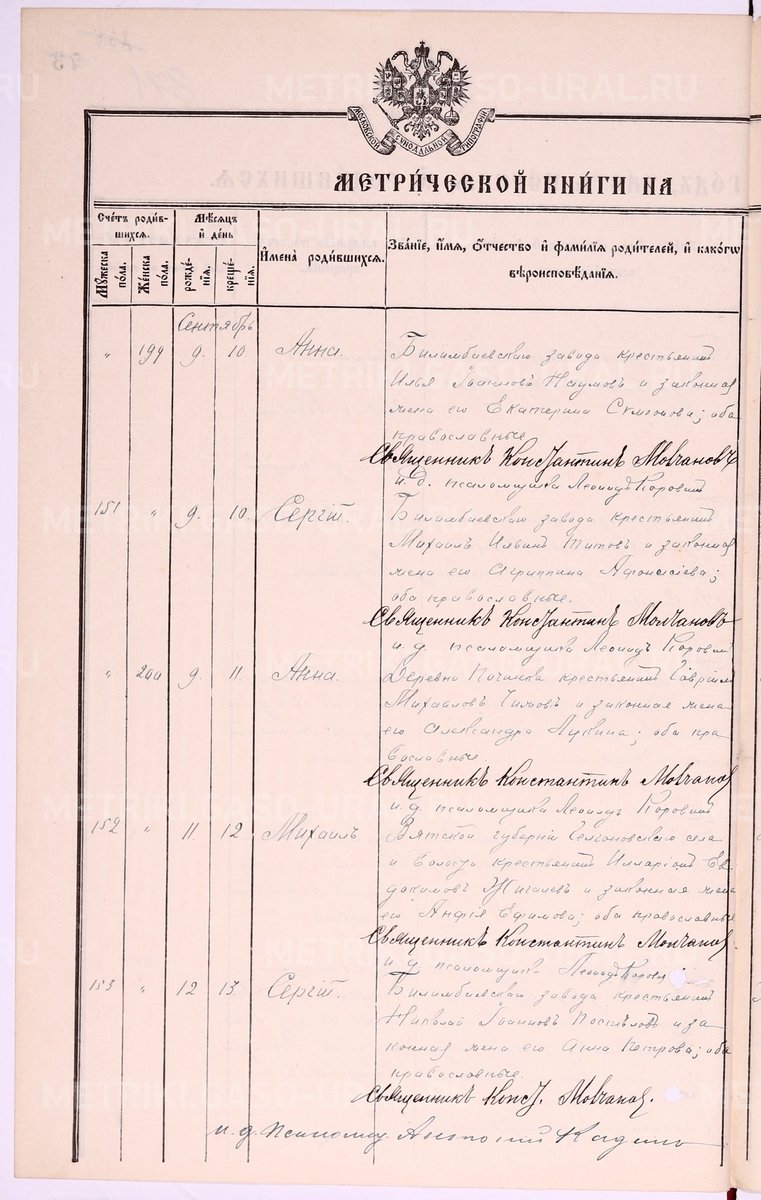 METRIKI.GASO-URAL.RU
МОСКОВСКОЙ СѴНОДАЛЬНОЙ ТИПОГРАФІИ
МЕТРИЧЕСКОЙ КНИГИ НА
Счетъ родив-
шихся.
Мѣсяцъ
и день
Имена родившихся.
Званіе, имя, отчество и фамилія родителей, и какогѡ
вѣроисповѣданія.
Мужеска пола.
Женска пола.
рожде-нія.
креще-нія.
Сентябрь
" 199 9. 10 Анна. Билимбаевскаго завода крестьянинъ
Илья Іоанновъ Наумовъ и законная
жена его Екатерина Симеонова; оба
православные
Священникъ Константинъ Молчановъ
и. д. псаломщика Леонидъ Коровинъ
151 " 9. 10. Сергій. Билимбаевскаго завода крестьянинъ
Михаилъ Ильинъ Титовъ и законная
жена его Агриппина; 
оба православные.
Священникъ Константинъ Молчановъ
и. д. псаломщика Леонидъ Коровинъ
" 200 9. 11. Анна. Деревни крестьянинъ Гавріилъ
Михайловъ и законная жена
его Александра Лукина; оба пра
вославные
Священникъ Константинъ Молчановъ
и. д. псаломщика Леонидъ Коровинъ
152 " 11 12. Михаилъ Вятской губерніи села
и волости крестьянинъ Илларіонъ Ев
докимовъ Жигалевъ и законная жена
его Ефимова; оба православные
Священникъ Константинъ Молчановъ
и. д. псаломщика Леонидъ Коровинъ
153 " 12 13. Сергій. Билимбаевскаго завода крестьянинъ
Николай Іоанновъ Постѣловъ и за
конная жена его Анна Петрова; оба
православные.
Священникъ Конст. Молчановъ.
и. д. псаломщ. Антоній